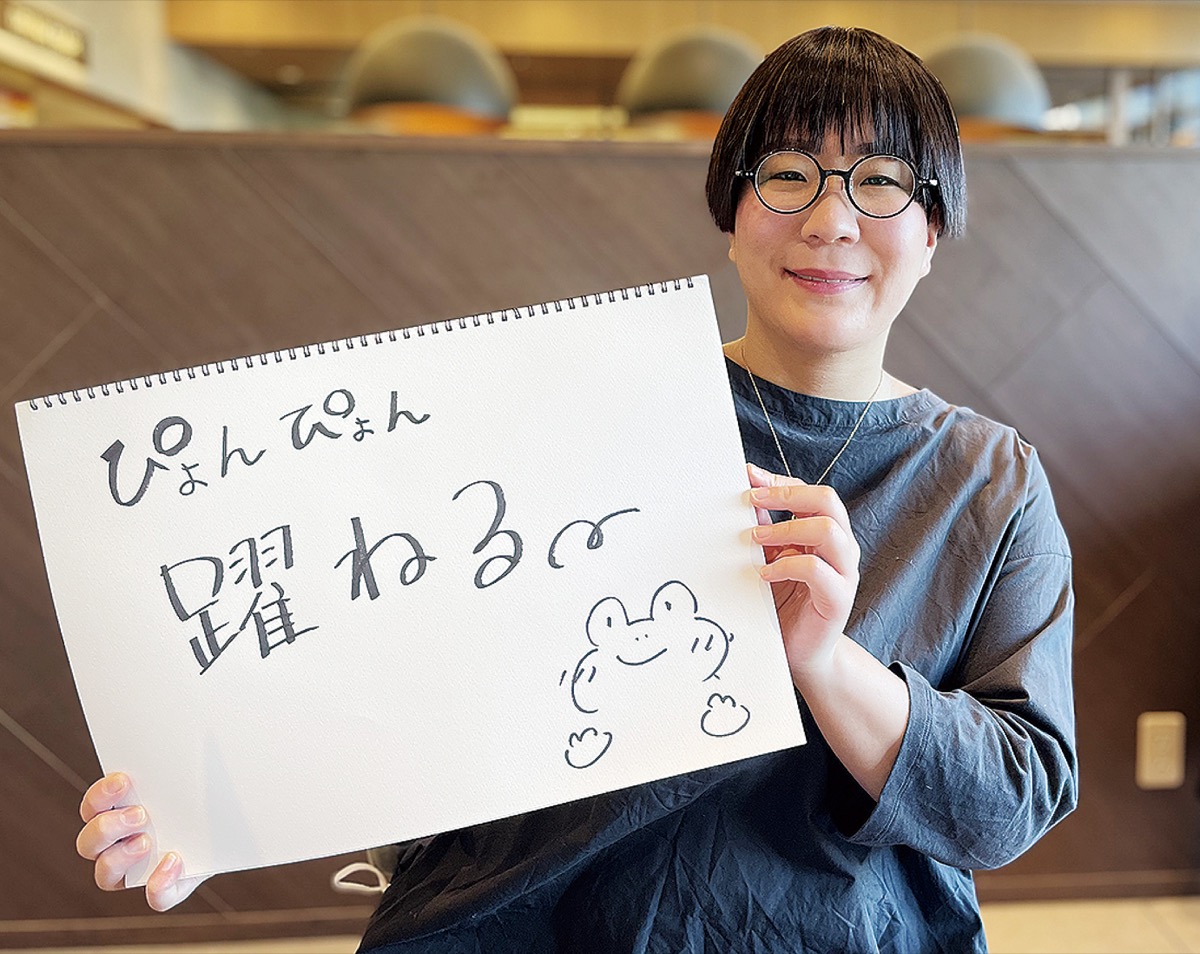 ぴょんぴょん
躍ねる〜